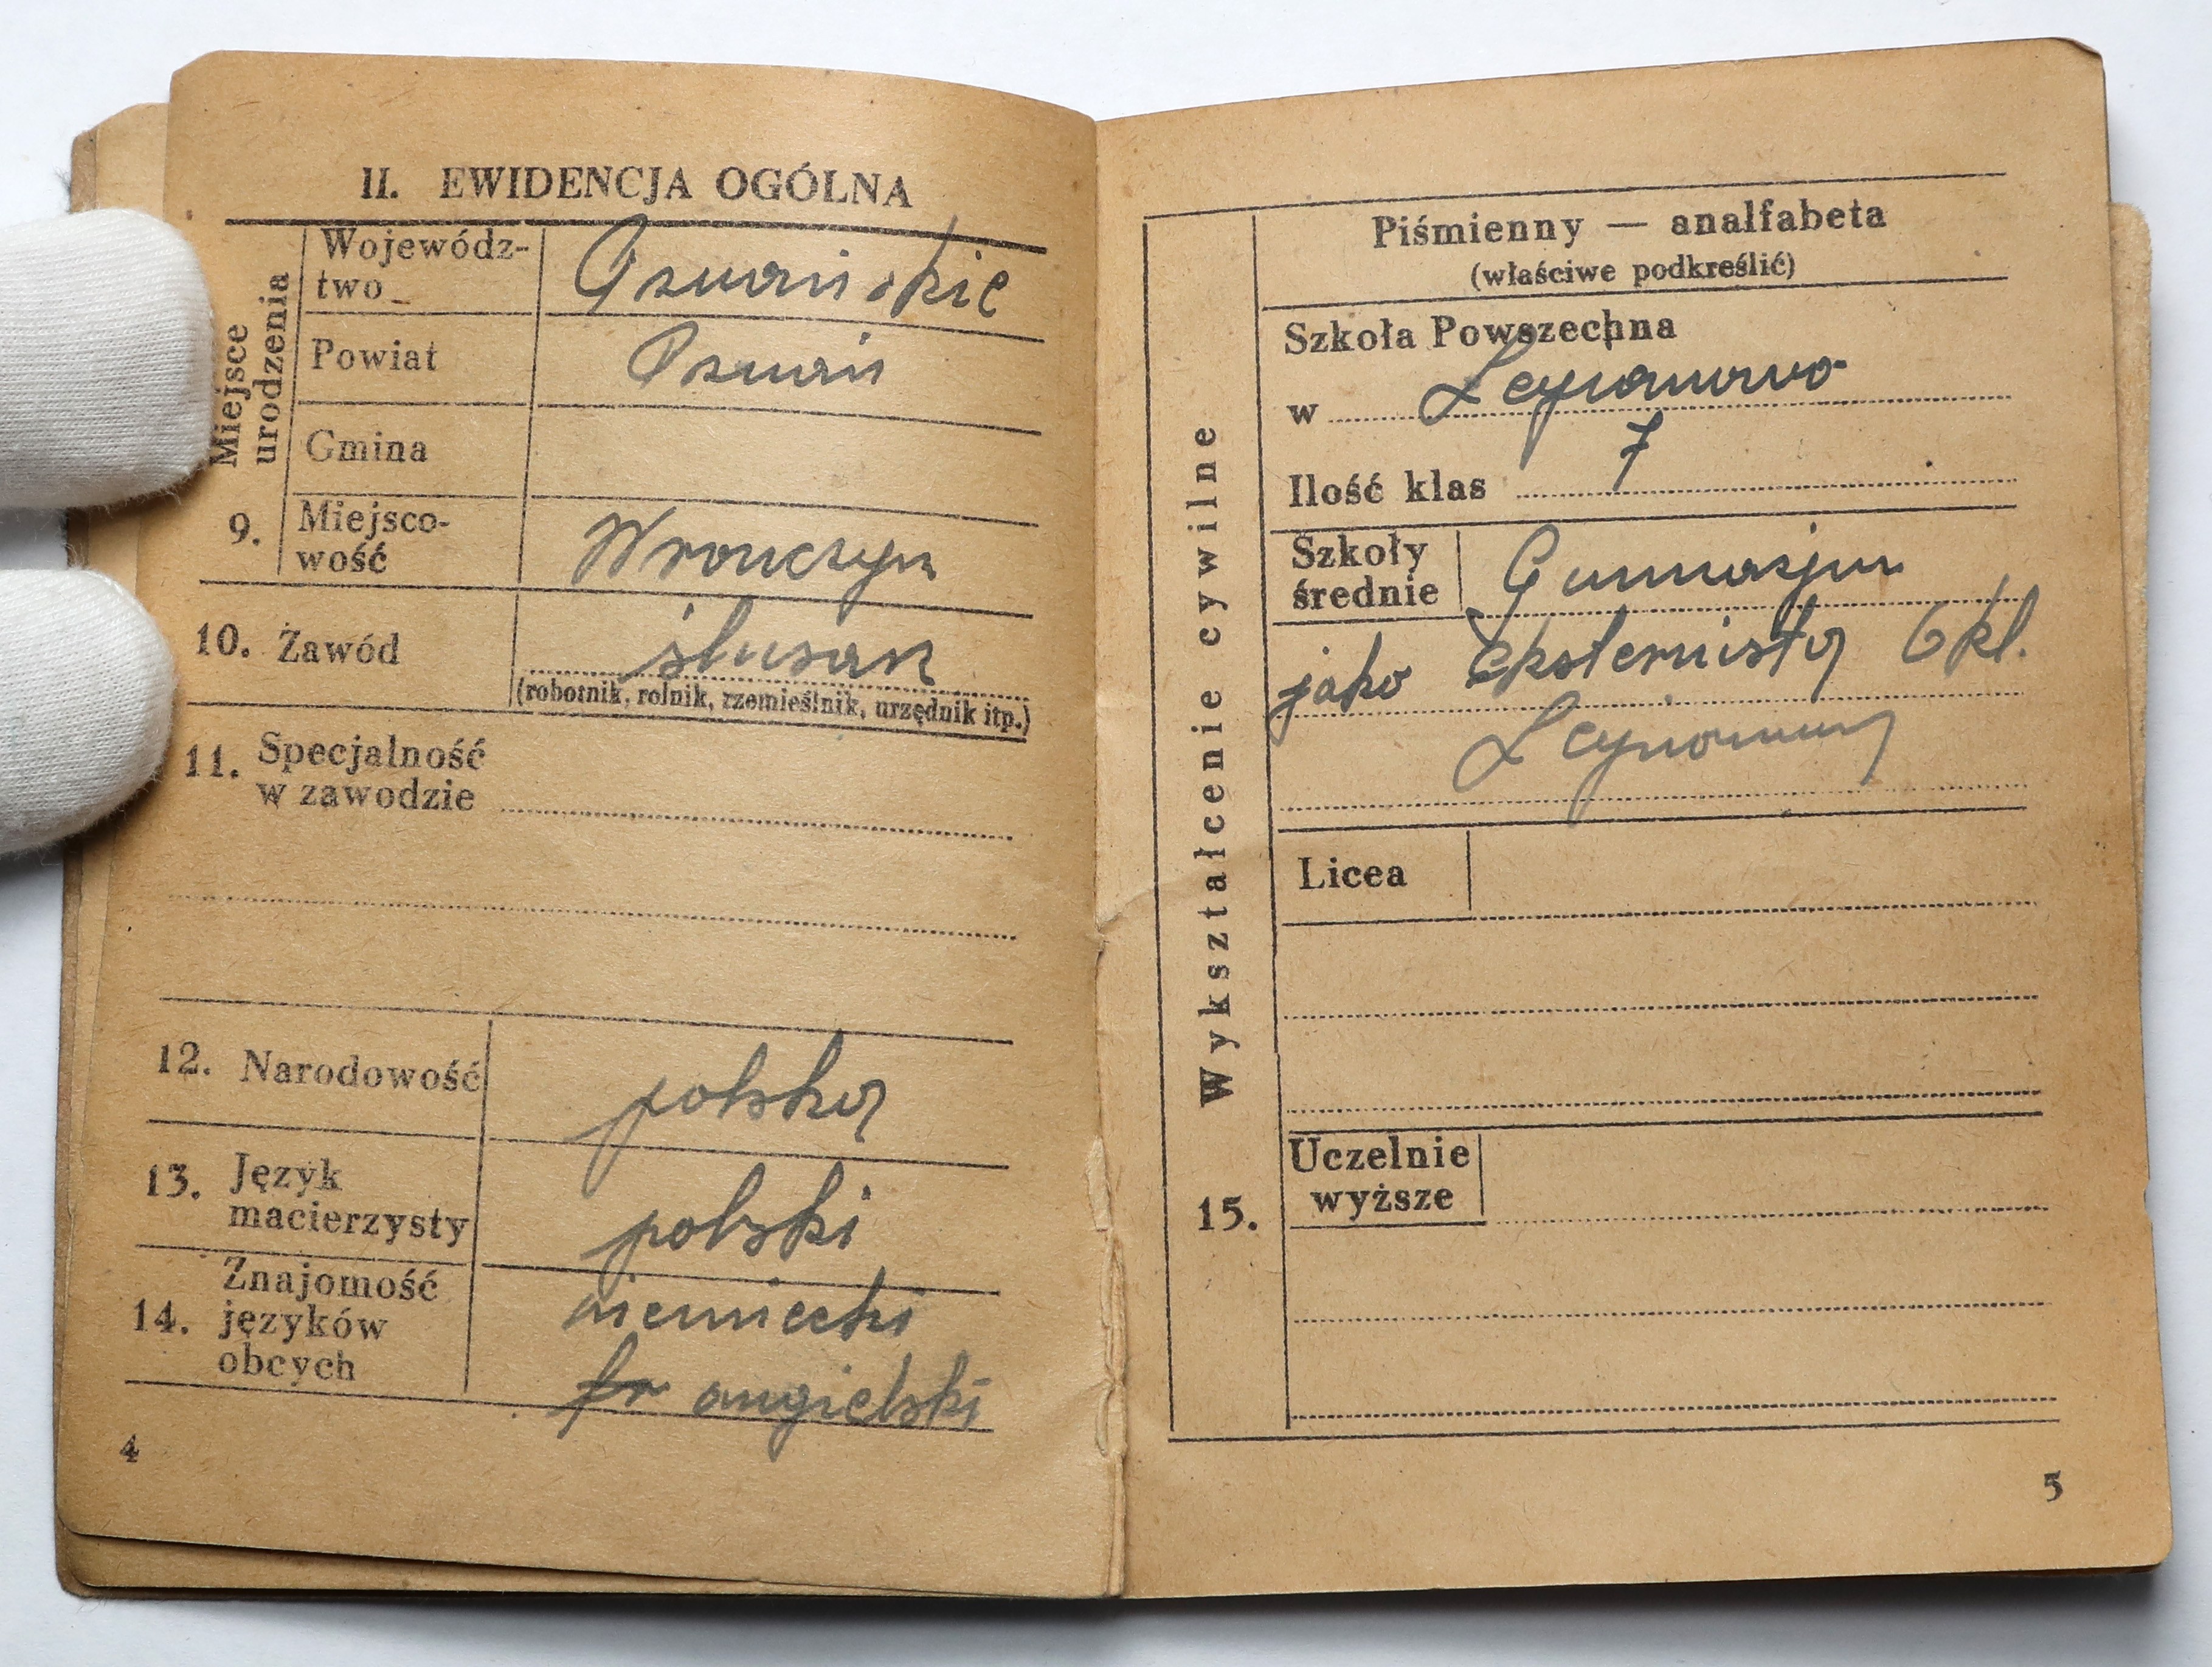 II. EWIDENCJA OGÓLNA
Miejsce urodzenia
Wojewódz-
two
Powiat
Poznań
Gmina
9. Miejsco-
wość
Wronczyn
10. Zawód
ślusarz
(robotnik, rolnik, rzemieślnik, urzędnik itp.)
11. Specjalność
w zawodzie
12. Narodowość
polska
13. Język
macierzysty
polski
14. Znajomość
języków
obcych
niemiecki
fr angielski
4
Piśmienny — analfabeta
(właściwe podkreślić)
Szkoła Powszechna
w Legionowo
Ilość klas 7
Szkoły
średnie
jako eksternista 6 kl.
Licea
Uczelnie
wyższe
15. Wykształcenie cywilne
5